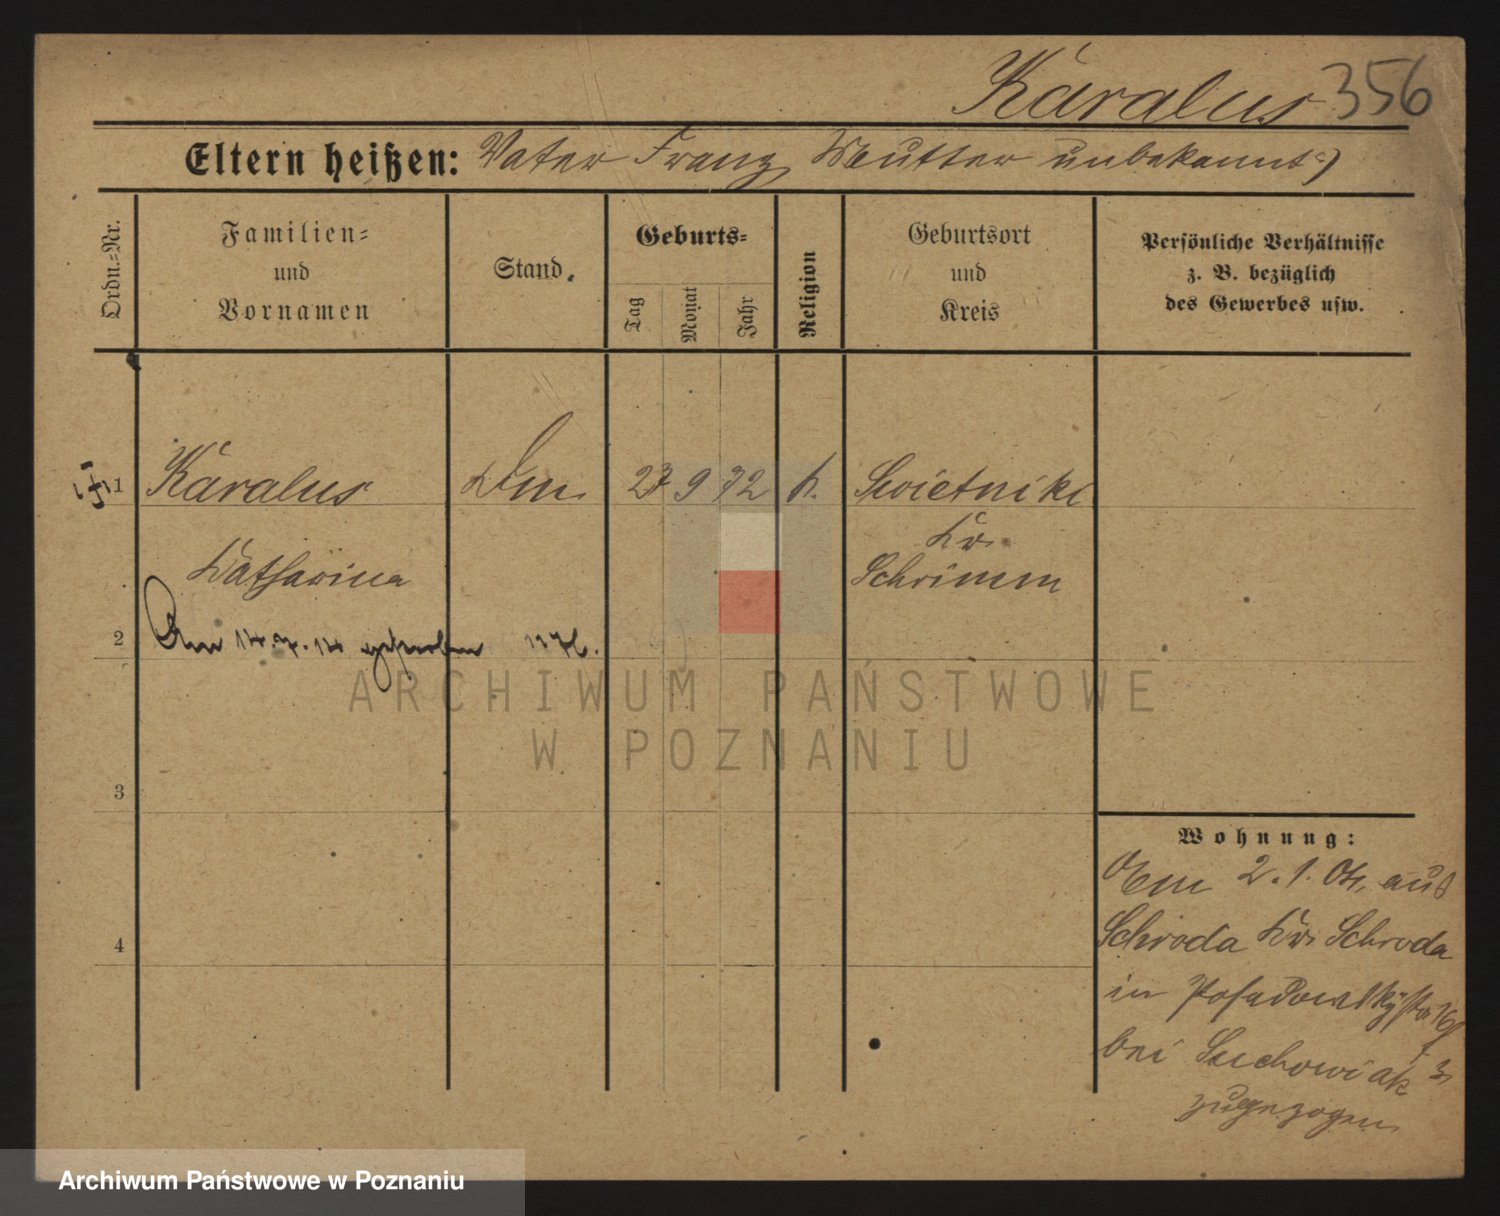 Karalus 356
Eltern heißen: Vater Franz, Mutter unbekannt
Ordn.=Nr.
Familien=
und
Vornamen
Stand.
Geburts=
Tag
Monat
Jahr
Religion
Geburtsort
und
Kreis
Persönliche Verhältnisse
z. B. bezüglich
des Gewerbes usw.
1 Karalus 27 9 72 k. Swietniki
Kr.
Katharina Schrimm
2 Am 14.7.14 gestorben 1176.
3
4
Wohnung:
2.1. aus
Schroda Kr. Schroda
in Posadowskystr 16
bei Suchowiak
zugezogen
ARCHIWUM PAŃSTWOWE
W POZNANIU
Archiwum Państwowe w Poznaniu